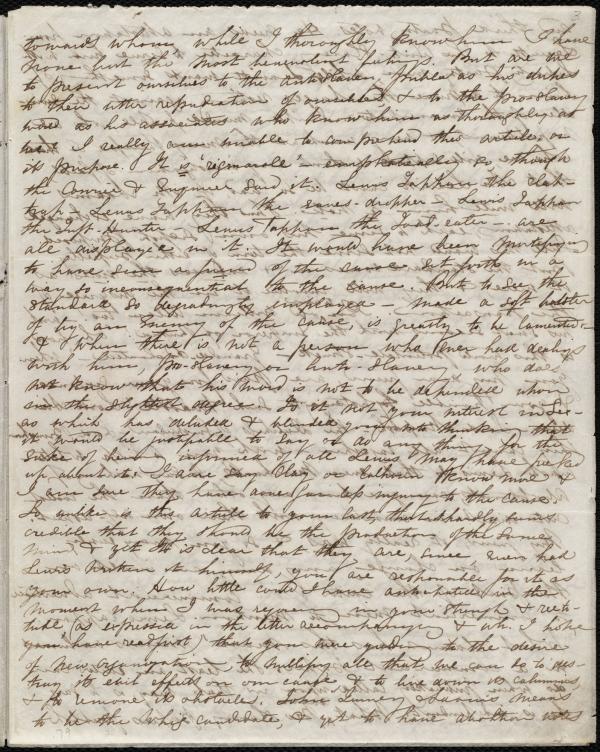 3
towards whom while I thoroughly know him I have
none but the most benevolent feelings. But are we
to present ourselves to the Antislavery public as his dupes
to their utter repudiation of ourselves & to the pro-slavery
world as his associates who know him as thoroughly as
we? I really am unable to comprehend this article, or
its purpose. It is 'rigmarole' emphatically, as though
the Courier & Enquirer said it. Lewis Tappan the clap-
trap, Lewis Tappan the eaves-dropper – Lewis Tappan
the Tuft-Hunter – Lewis Tappan the Toad-eater – are
all displayed in it. It would have been mortifying
to have seen a friend of the cause set forth in a
way so inconsequential to the cause. But to see the
Standard so degradingly employed – made a soft bolster
of by an Enemy of the cause, is greatly to be lamented –
& when there is not a person who ever had dealings
with him, pro-slavery or anti-slavery who does
not know that his word is not to be depended upon
in the slightest degree. Is it not your interest in
as which has deluded & blinded you into thinking that
it would be justifiable to say or do any thing for the
sake of being informed of all Lewis may have picked
up about it? I dare say Clay or Calhoun know more &
I am sure they have done far less injury to the cause.
So unlike is this article to your last, that it hardly seems
credible that they should be the production of the same
mind, & yet it is clear that they are, since even had
Lewis written it himself, you are responsible for it as
your own. How little could I have anticipated in the
moment when I was rejoicing in your strength & recti-
tude (as expressed in the letter accompanying & wh. I hope
you have read first) that you were yielding to the desire
of new organization – to nullifying all that we can do to des-
troy its evil effects on our cause & to live down its calumnies
& to remove its obstacles. John Quincy Adams means
to be the Whig candidate, & yet to have abolition votes